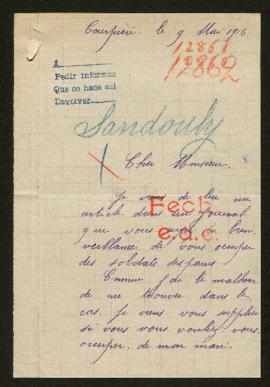 Courpière. le 9 Mai 1916.
12861
12862
A
Pedir informes
Que se hace así
Devolver
Sandouly
Cher Monsieur.
Je viens de lire un
article, dans un journal
que vous avez la bien
veillance de vous occuper
des soldats disparus
Fech
e.d.c.
Comme j'ai le malheur
de me trouver dans le
cas, je viens vous supplier
si vous vous voulez vous
occuper, de mon mari.